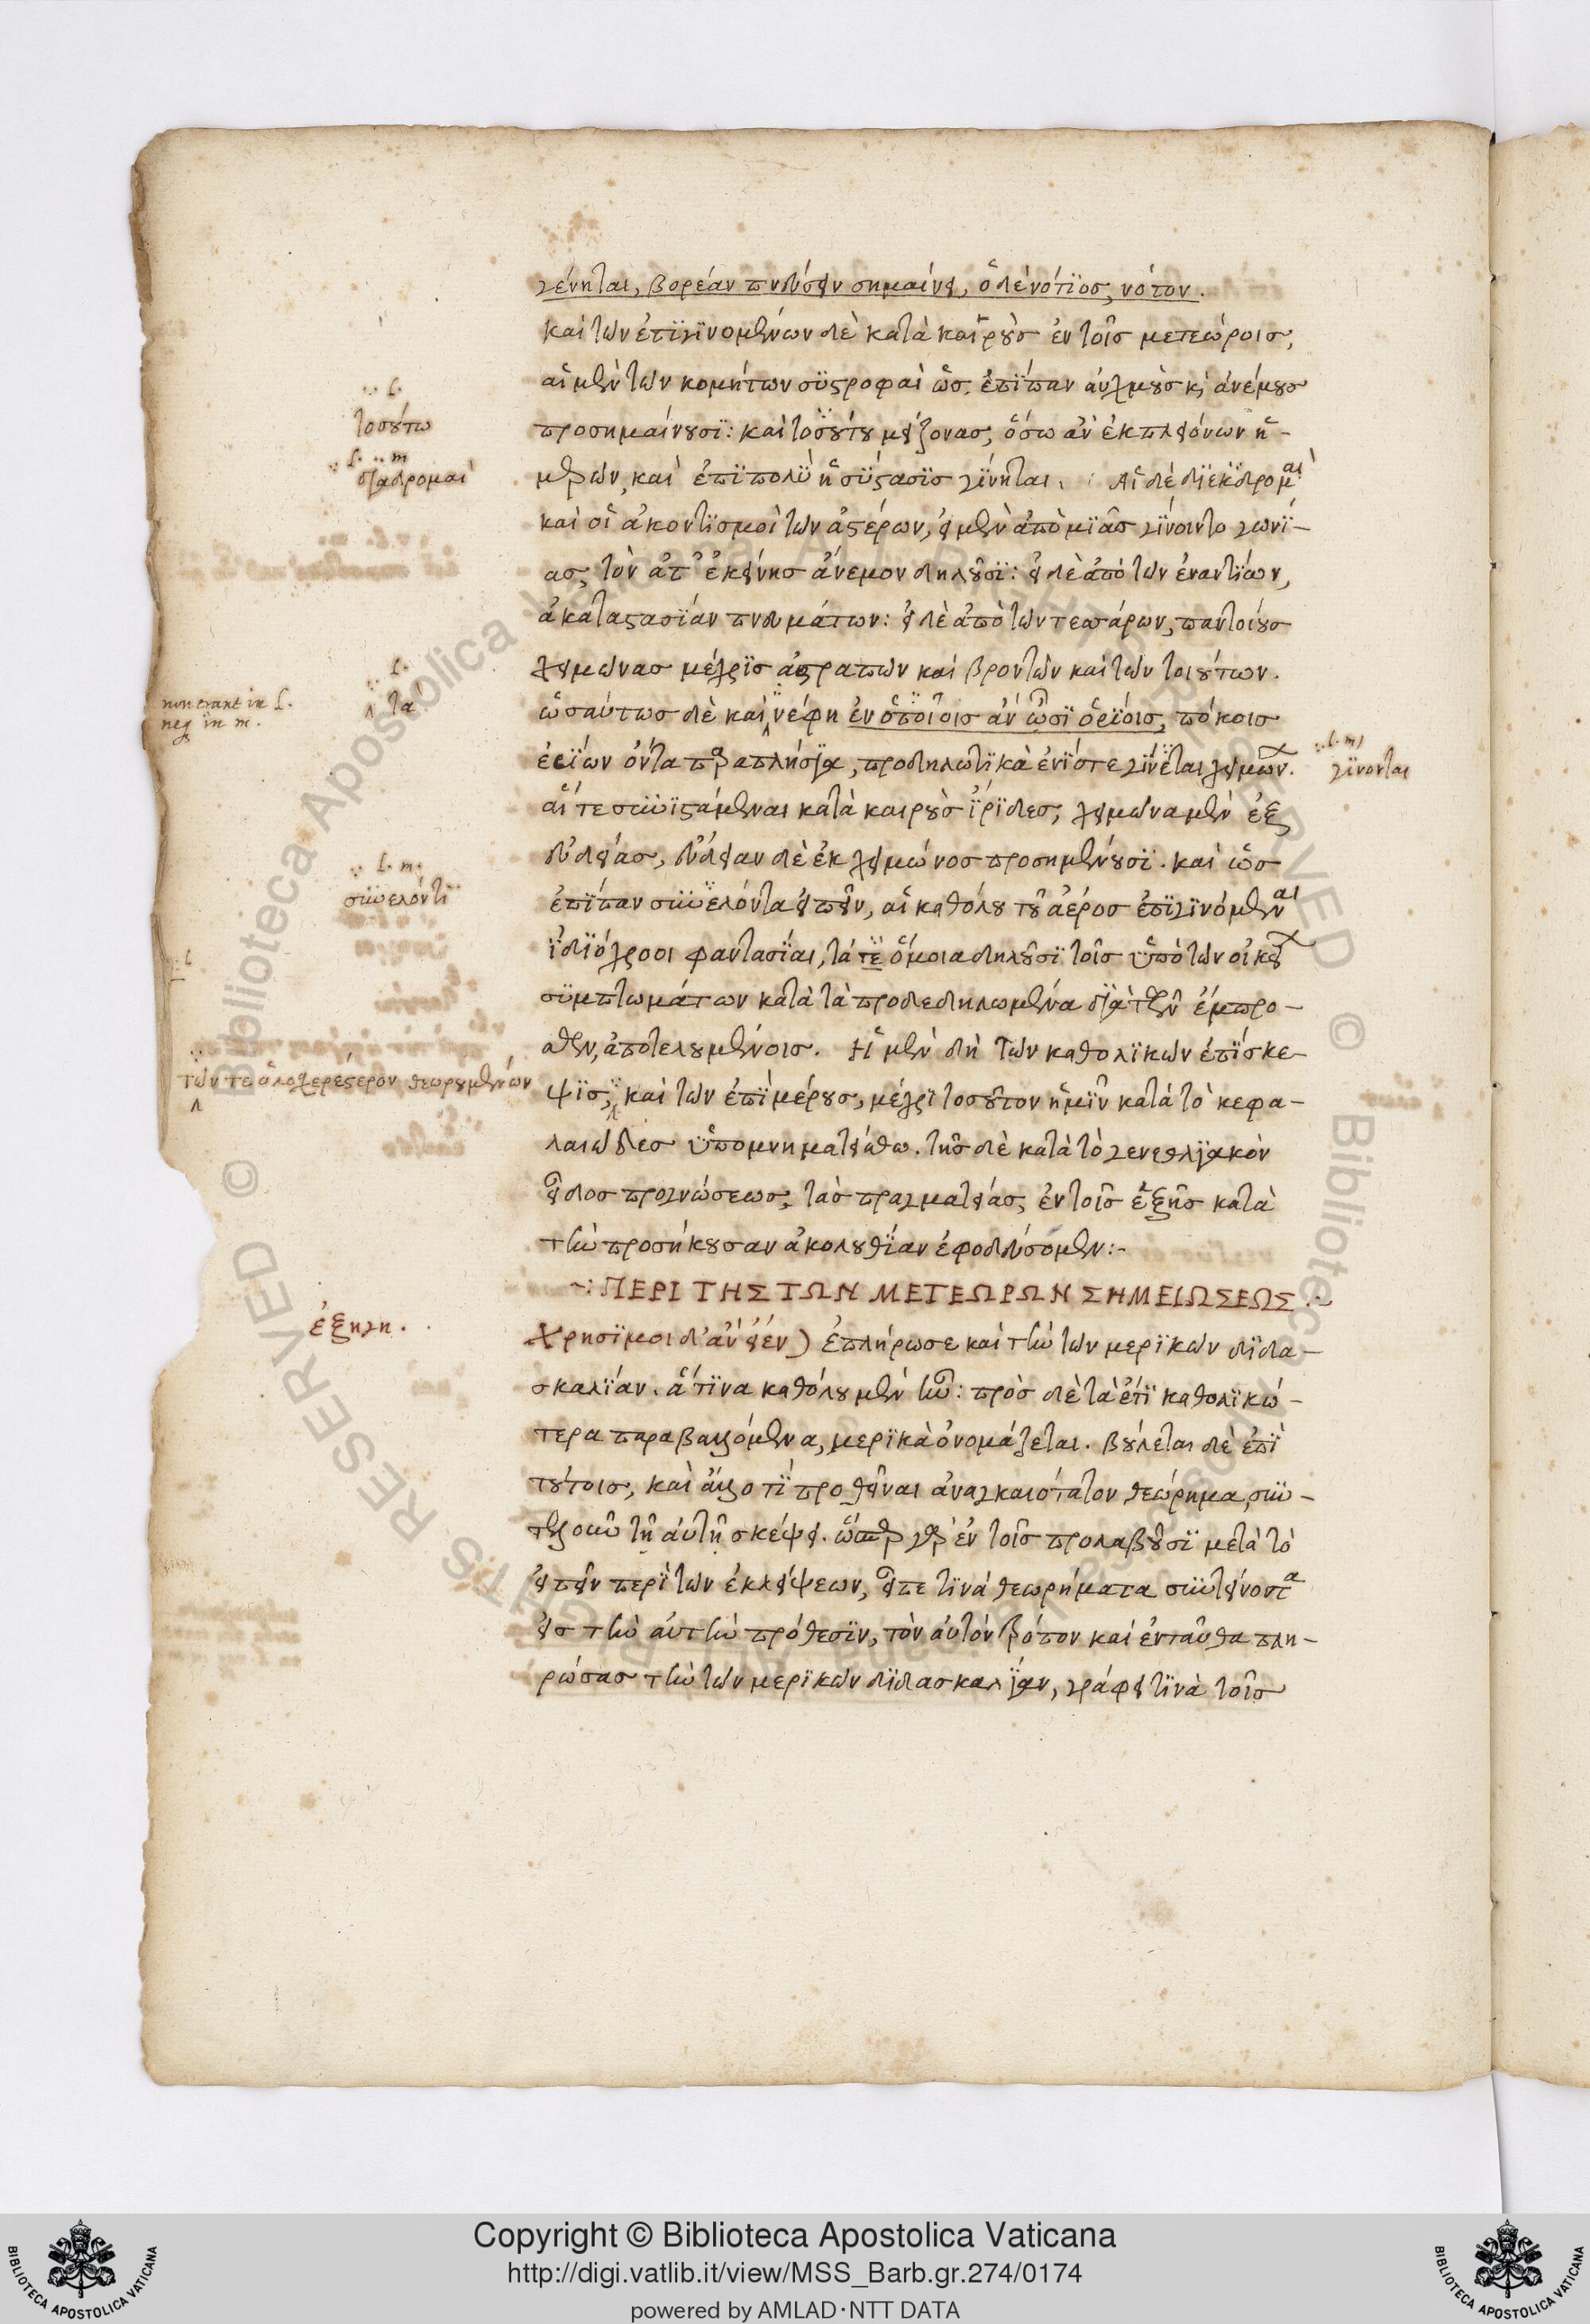 γένηται, βορέαν πνεύσειν σημαίνει, ὁ δὲ νότιος, νότον.
καὶ τῶν ἐπιγινομένων δὲ κατὰ καιροὺς ἐν τοῖς μετεώροις,
αἱ μὲν τῶν κομήτων συστροφαὶ ὡς ἐπίπαν αὐχμοὺς κ ἀνέμους
προσημαίνουσι: καὶ τοσούτου μείζονας, ὅσῳ ἂν ἐκ πλειόνων ἡ-
μερῶν, καὶ ἐπιπολὺ ἡ σύστασις γίνηται. Αἱ δὲ διεκδρομαὶ
καὶ οἱ ἀκοντισμοὶ τῶν ἀστέρων, εἰ μὲν ἀπὸ μιᾶς γίνοιντο γωνί-
ας, τὸν ἀπ' ἐκείνης ἄνεμον δηλοῦσι: εἰ δὲ ἀπὸ τῶν ἐναντίων,
ἀκαταστασίαν πνευμάτων: εἰ δὲ ἀπὸ τῶν τεσσάρων, παντοίους
χειμῶνας μέχρις ἀστραπῶν καὶ βροντῶν καὶ τῶν τοιούτων.
ὡσαύτως δὲ καὶ νέφη ἐν ὁποίοις ἂν ὦσι ὁρίοις, πόκοις
ἐρίων ὄντα παραπλήσια, προδηλωτικὰ ἐνίοτε γίνεται χειμών.
αἵ τε συνιστάμεναι κατὰ καιροὺς ἴριδες, χειμῶνα μὲν ἐξ
εὐδείας, εὐδείαν δὲ ἐκ χειμῶνος προσημένουσι. καὶ ὡς
ἐπίπαν συνελόντα εἰπεῖν, αἱ καθόλου τοῦ ἀέρος ἐπιγινόμεναι
ἰδιόχροοι φαντασίαι, τά τε ὅμοια δηλοῦσι τοῖς ὑπὸ τῶν οἰκεί
συμπτωμάτων κατὰ τὰ προδεδηλωμένα διὰ τῶν ἔμπρο-
σθεν, ἀποτελουμένοις. Ἡ μὲν δὴ τῶν καθολικῶν ἐπίσκε-
ψις, καὶ τῶν ἐπὶ μέρους, μέχρι τοσοῦτον ἡμῖν κατὰ τὸ κεφα-
λαιῶδες ὑπομνηματείσθω. τῆς δὲ κατὰ τὸ γενεθλιακὸν
εἶδος προγνώσεως, τὰς πραγματείας, ἐν τοῖς ἑξῆς κατὰ
τὴν προσήκουσαν ἀκολουθίαν ἐφοδεύσομεν:-
~: ΠΕΡΙ ΤΗΣ ΤΩΝ ΜΕΤΕΩΡΩΝ ΣΗΜΕΙΩΣΕΩΣ.~
Χρήσιμοι δ' ἂν εἶεν) ἐπλήρωσε καὶ τὴν τῶν μερικῶν διδα-
σκαλίαν. ἅτινα καθόλου μὲν ἦν: πρὸς δὲ τὰ ἔτι καθολικώ-
τερα παραβαλλόμενα, μερικὰ ὀνομάζεται. βούλεται δὲ ἐπὶ
τούτοις, καὶ ἄλλο τι προσθεῖναι ἀναγκαιότατον θεώρημα, συν-
τεῖνον τῇ αὐτῇ σκέψει. ὥσπερ γὰρ ἐν τοῖς προλαβοῦσι μετὰ τὸ
εἰπεῖν περὶ τῶν ἐκλείψεων, εἶπε τινά θεωρήματα συντείνοντα
εἰς τὴν αὐτὴν πρόθεσιν, τὸν αὐτὸν τρόπον καὶ ἐνταῦθα πλη-
ρώσας τὴν τῶν μερικῶν διδασκαλίαν, γράφει τινὰ τοῖς
∵ l.
τοσούτῳ
∵ l. ∵ m
διαδρομαὶ
∵ l.
τὰ
non erant in l.
neq in m.
∵ l. m)
γίνονται
∵ l. m.
συνελόντι
τῶν τε ὁλοσχερέστερον θεωρουμένων
ἐξηγη.
© Biblioteca Apostolica Vaticana ALL RIGHTS RESERVED
Copyright © Biblioteca Apostolica Vaticana
http://digi.vatlib.it/view/MSS_Barb.gr.274/0174
powered by AMLAD·NTT DATA
BIBLIOTECA APOSTOLICA VATICANA
BIBLIOTECA APOSTOLICA VATICANA